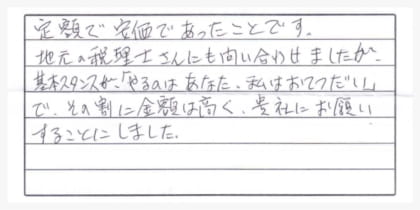 定額で安価であったことです。
地元の税理士さんにも問い合わせましたが、
基本スタンスが、「やるのはあなた、私はおてつだい」
で、その割に金額は高く、貴社にお願い
することにしました。